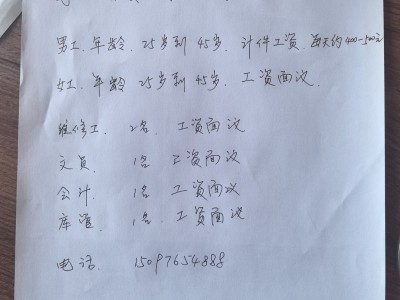 男工.年龄.25岁到45岁.计件工资.每天约400-500元
女工.年龄25岁到45岁.工资面议.
维修工.2名.工资面议
文员 1名 工资面议
会计 1名 工资面议
库管 1名.工资面议
电话.15097654888